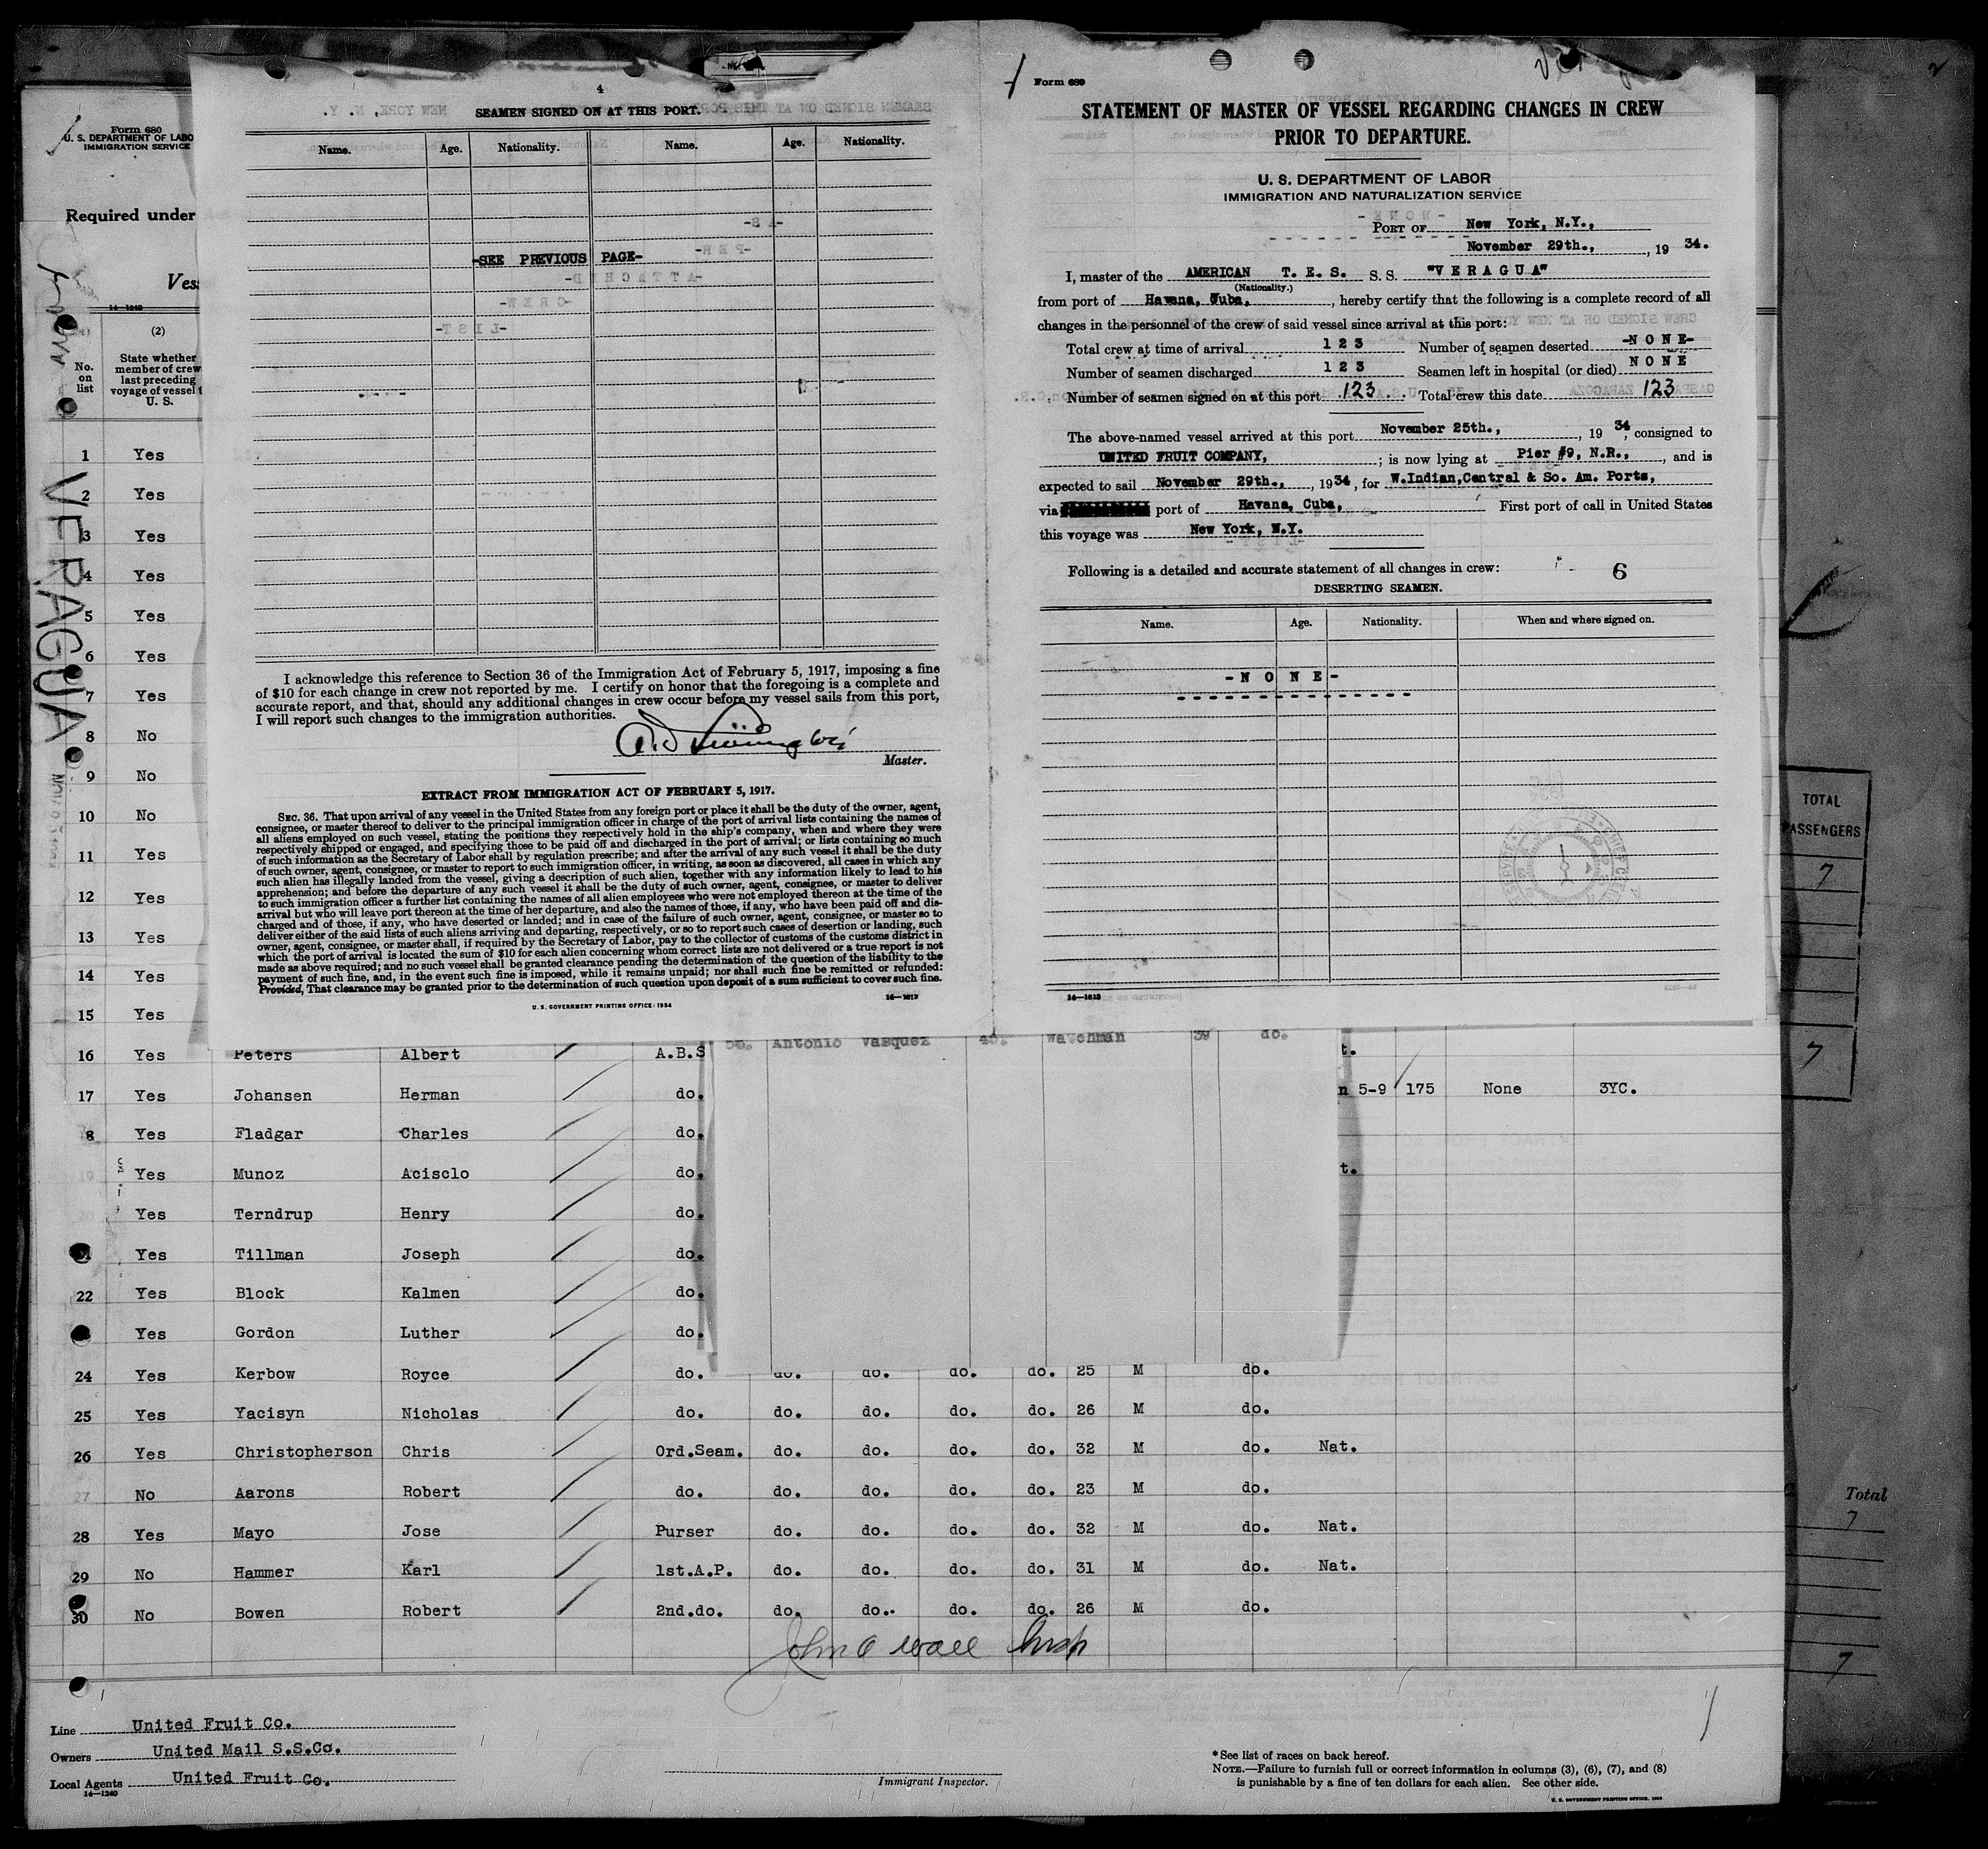 4
SEAMEN SIGNED ON AT THIS PORT.
Name. Age. Nationality. Name. Age. Nationality.
-SEE PREVIOUS PAGE-
I acknowledge this reference to Section 36 of the Immigration Act of February 5, 1917, imposing a fine
of $10 for each change in crew not reported by me. I certify on honor that the foregoing is a complete and
accurate report, and that, should any additional changes in crew occur before my vessel sails from this port,
I will report such changes to the immigration authorities.
Master.
EXTRACT FROM IMMIGRATION ACT OF FEBRUARY 5, 1917.
SEC. 36. That upon arrival of any vessel in the United States from any foreign port or place it shall be the duty of the owner, agent,
consignee, or master thereof to deliver to the principal immigration officer in charge of the port of arrival lists containing the names of
all aliens employed on such vessel, stating the positions they respectively hold in the ship's company, when and where they were
respectively shipped or engaged, and specifying those to be paid off and discharged in the port of arrival; or lists containing so much
of such information as the Secretary of Labor shall by regulation prescribe; and after the arrival of any such vessel it shall be the duty
of such owner, agent, consignee, or master to report to such immigration officer, in writing, as soon as discovered, all cases in which any
such alien has illegally landed from the vessel, giving a description of such alien, together with any information likely to lead to his
apprehension; and before the departure of any such vessel it shall be the duty of such owner, agent, consignee, or master to deliver
to such immigration officer a further list containing the names of all alien employees who were not employed thereon at the time of the
arrival but who will leave port thereon at the time of her departure, and also the names of those, if any, who have been paid off and dis-
charged and of those, if any, who have deserted or landed; and in case of the failure of such owner, agent, consignee, or master so to
deliver either of the said lists of such aliens arriving and departing, respectively, or so to report such cases of desertion or landing, such
owner, agent, consignee, or master shall, if required by the Secretary of Labor, pay to the collector of customs of the customs district in
which the port of arrival is located the sum of $10 for each alien concerning whom correct lists are not delivered or a true report is not
made as above required; and no such vessel shall be granted clearance pending the determination of the question of the liability to the
payment of such fine, and, in the event such fine is imposed, while it remains unpaid; nor shall such fine be remitted or refunded:
Provided, That clearance may be granted prior to the determination of such question upon deposit of a sum sufficient to cover such fine.
U. S. GOVERNMENT PRINTING OFFICE: 1934
14—1613
Form 689
STATEMENT OF MASTER OF VESSEL REGARDING CHANGES IN CREW
PRIOR TO DEPARTURE.
U. S. DEPARTMENT OF LABOR
IMMIGRATION AND NATURALIZATION SERVICE
PORT OF New York, N.Y.,
November 29th., , 19 34.
I, master of the AMERICAN T. E. S. S. S. "VERAGUA"
(Nationality.)
from port of Havana, Cuba, , hereby certify that the following is a complete record of all
changes in the personnel of the crew of said vessel since arrival at this port:
Total crew at time of arrival 123 Number of seamen deserted -NONE-
Number of seamen discharged 123 Seamen left in hospital (or died) NONE
Number of seamen signed on at this port 123 Total crew this date 123
The above-named vessel arrived at this port November 25th., , 19 34, consigned to
UNITED FRUIT COMPANY, ; is now lying at Pier #9, N.R., , and is
expected to sail November 29th., , 1934, for W.Indian,Central & So. Am. Ports,
via port of Havana, Cuba, First port of call in United States
this voyage was New York, N.Y.
Following is a detailed and accurate statement of all changes in crew: 6
DESERTING SEAMEN.
Name. Age. Nationality. When and where signed on.
-NONE-
14—1613
Form 680
U. S. DEPARTMENT OF LABO
IMMIGRATION SERVICE
Required under
Ves
14—1240
(2)
No. on list
State whether
member of crew
last preceding
voyage of vessel t
U. S.
VERAGUA
1 Yes
2 Yes
3 Yes
4 Yes
5 Yes
6 Yes
7 Yes
8 No
9 No
10 No
11 Yes
12 Yes
13 Yes
14 Yes
15 Yes
16 Yes Peters Albert A.B.S
56. Antonio Vasquez Watchman 39 do.
t.
17 Yes Johansen Herman do. n 5-9 175 None 3YC.
8 Yes Fladgar Charles do.
19 Yes Munoz Acisclo do. t.
20 Yes Terndrup Henry do.
Yes Tillman Joseph do.
22 Yes Block Kalmen do.
Yes Gordon Luther do.
24 Yes Kerbow Royce do. do. do. do. do. 25 M do.
25 Yes Yacisyn Nicholas do. do. do. do. do. 26 M do.
26 Yes Christopherson Chris Ord.Seam. do. do. do. do. 32 M do. Nat.
27 No Aarons Robert do. do. do. do. do. 23 M do.
28 Yes Mayo Jose Purser do. do. do. do. 32 M do. Nat.
29 No Hammer Karl 1st.A.P. do. do. do. do. 31 M do. Nat.
30 No Bowen Robert 2nd.do. do. do. do. do. 26 M do.
John O Wall Insp
Line United Fruit Co.
Owners United Mail S.S.Co.
Local Agents United Fruit Co.
14—1240
Immigrant Inspector.
*See list of races on back hereof.
NOTE.—Failure to furnish full or correct information in columns (3), (6), (7), and (8)
is punishable by a fine of ten dollars for each alien. See other side.
TOTAL
PASSENGERS
7
7
Total
7
7